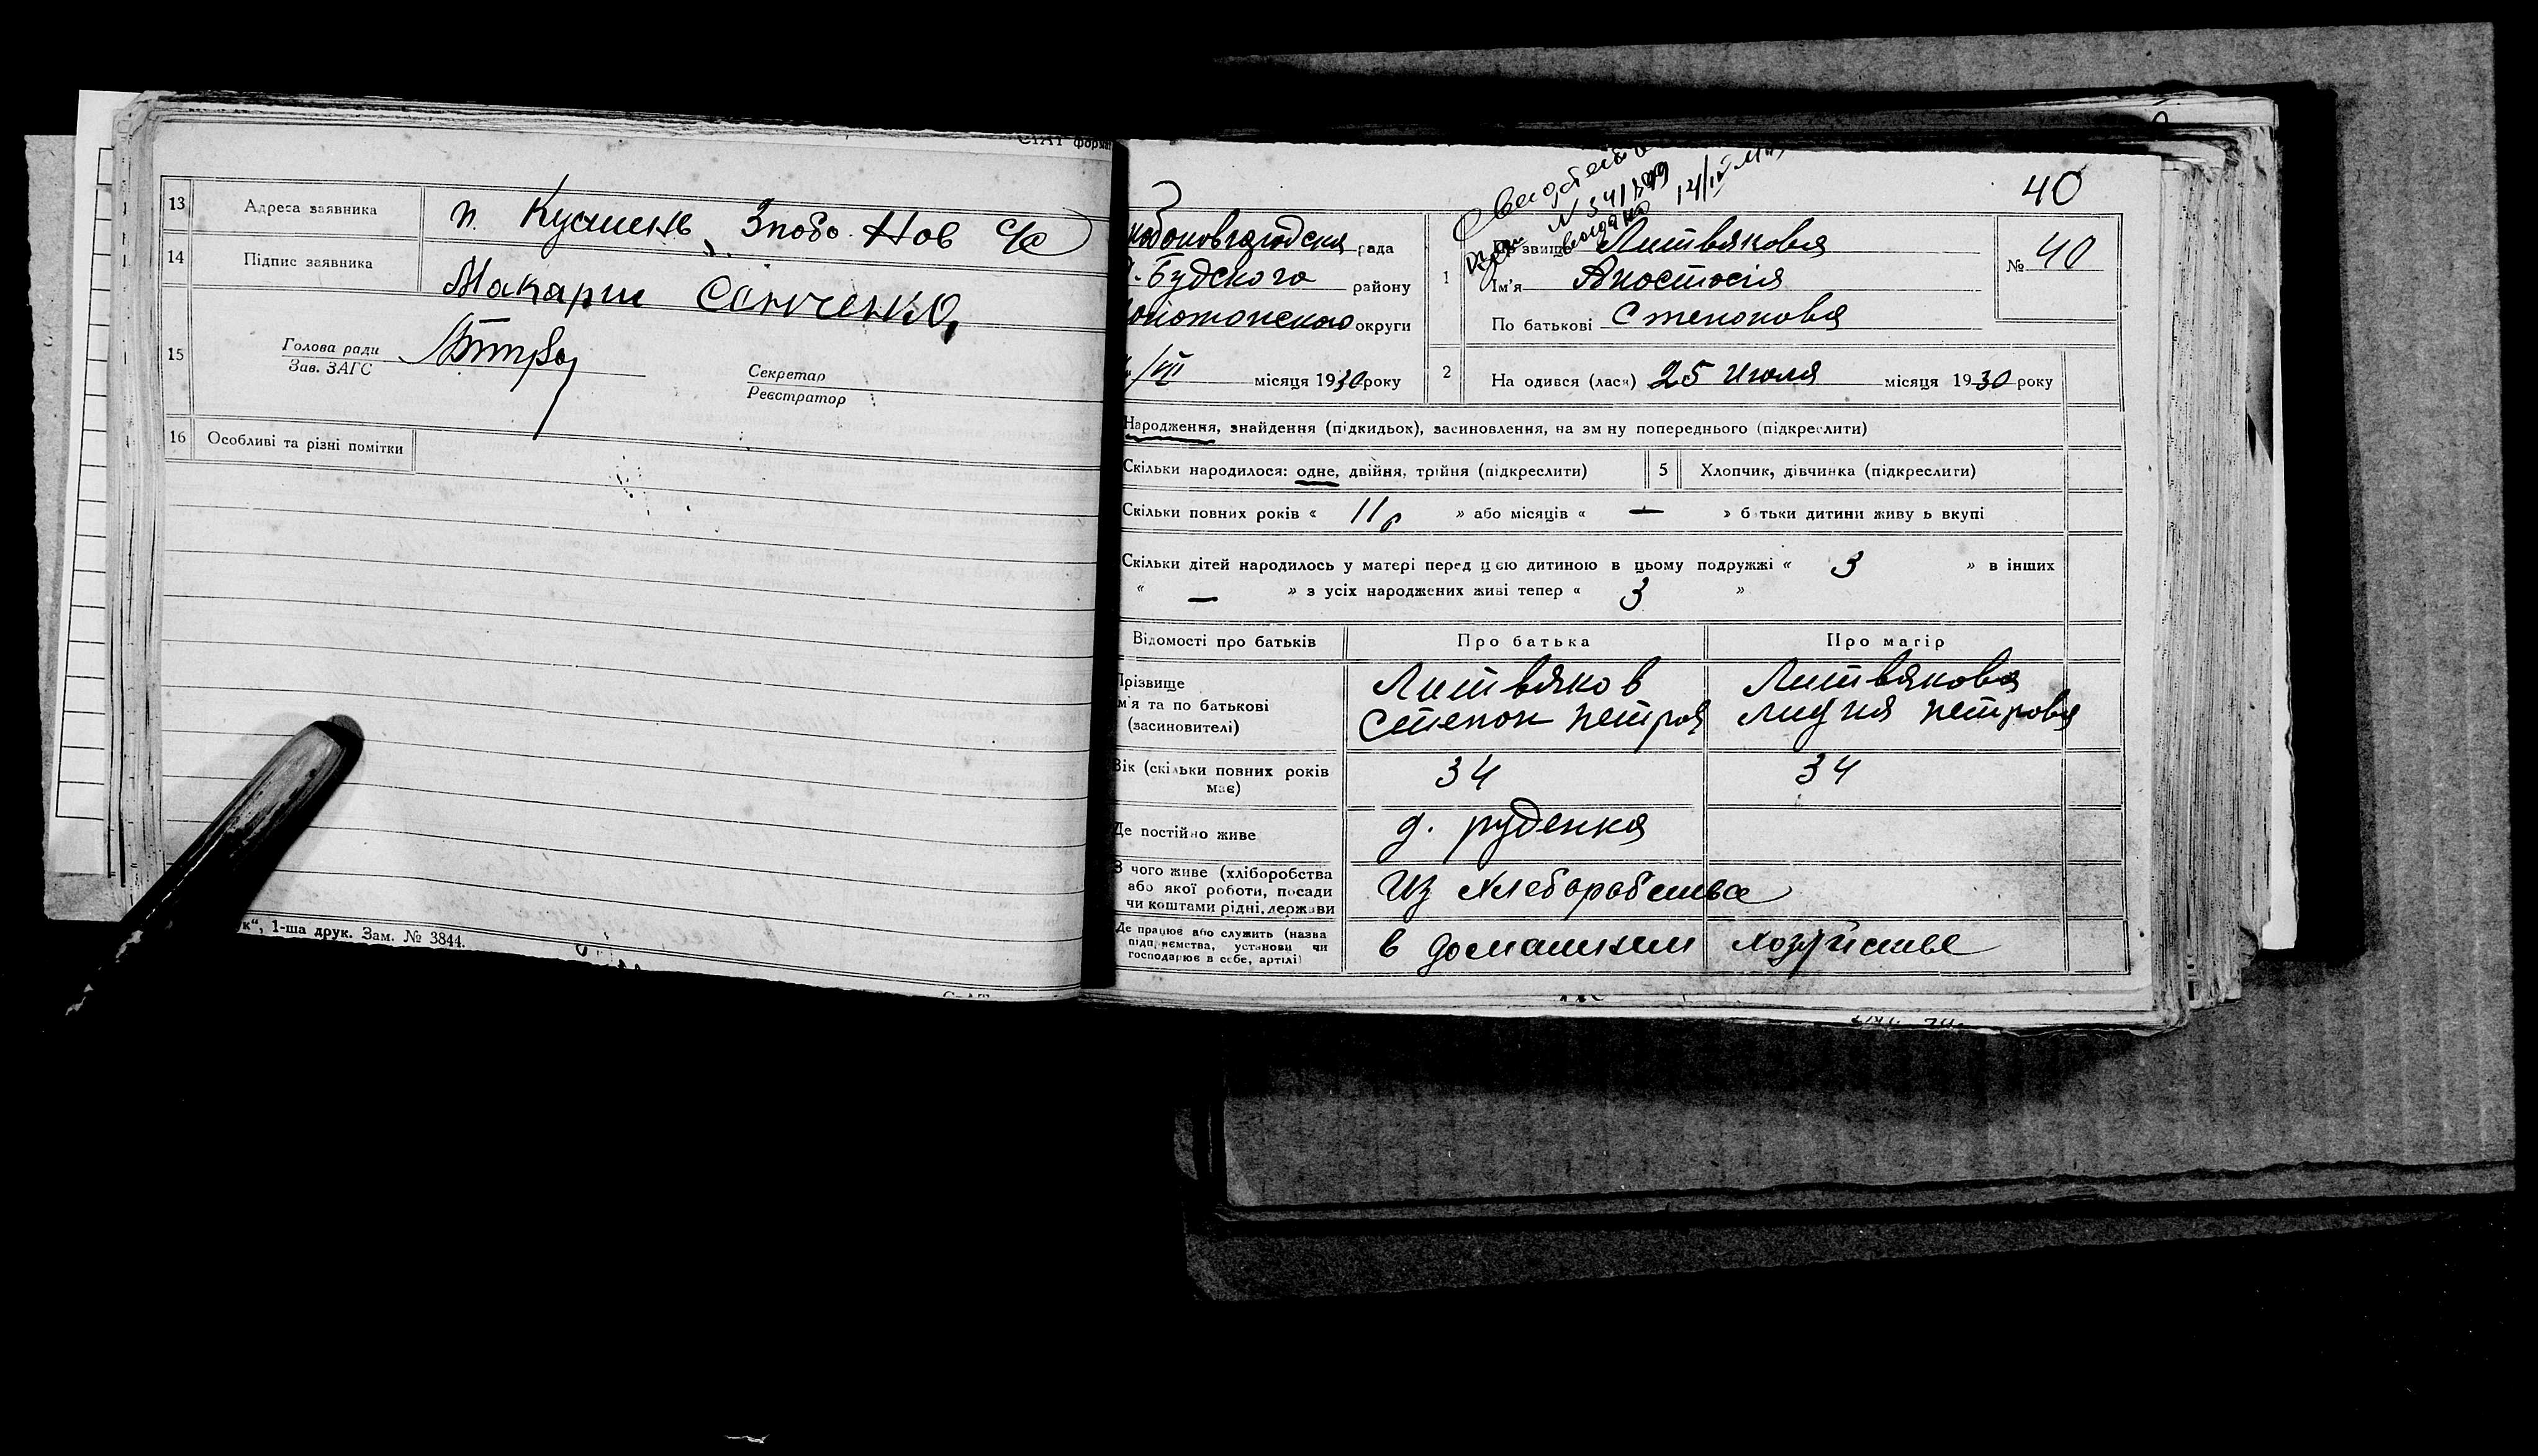 13 Адреса заявника п. Кусшень, Знобо. Нов с/с
14 Підпис заявника Макарш Сенченко,
15 Голова ради
Зав. ЗАГС
Секретар
Реєстратор
16 Особливі та різні помітки
ук“, 1-ша друк. Зам. № 3844.
40
N 341799
рада
Будского району
округи
/VII місяця 1930 року
1 Литвякова
Ім'я Анастасія
По батькові Степановя
№ 40
2 На одився (лася) 25 Июля місяця 1930 року
Народження, знайдення (підкидьок), засиновлення, на зм ну попереднього (підкреслити)
Скільки народилося: одне, двійня, трійня (підкреслити) 5 Хлопчик, дівчинка (підкреслиги)
Скільки повних років « 11 р » або місяців « — » б тьки дитини живу ь вкупі
Скільки дітей народилось у матері перед цією дитиною в цьому подружжі « 3 » в інших
« — » з усіх народжених живі тепер « 3 »
Відомості про батьків Про батька Про матір
Прізвище Литвяков Литвякова
м'я та по батькові Степан Петров Лидия Петровя
(засиновителі)
Вік (скільки повних років має) 34 34
Де постійно живе д. руденка
З чого живе (хліборобства
або якої роботи, посади
чи коштами рідні, держави Из хлеборобства
Де працює або служить (назва
підприємства, установи чи
господарює в себе, артілі) в домашнем хозяйстве